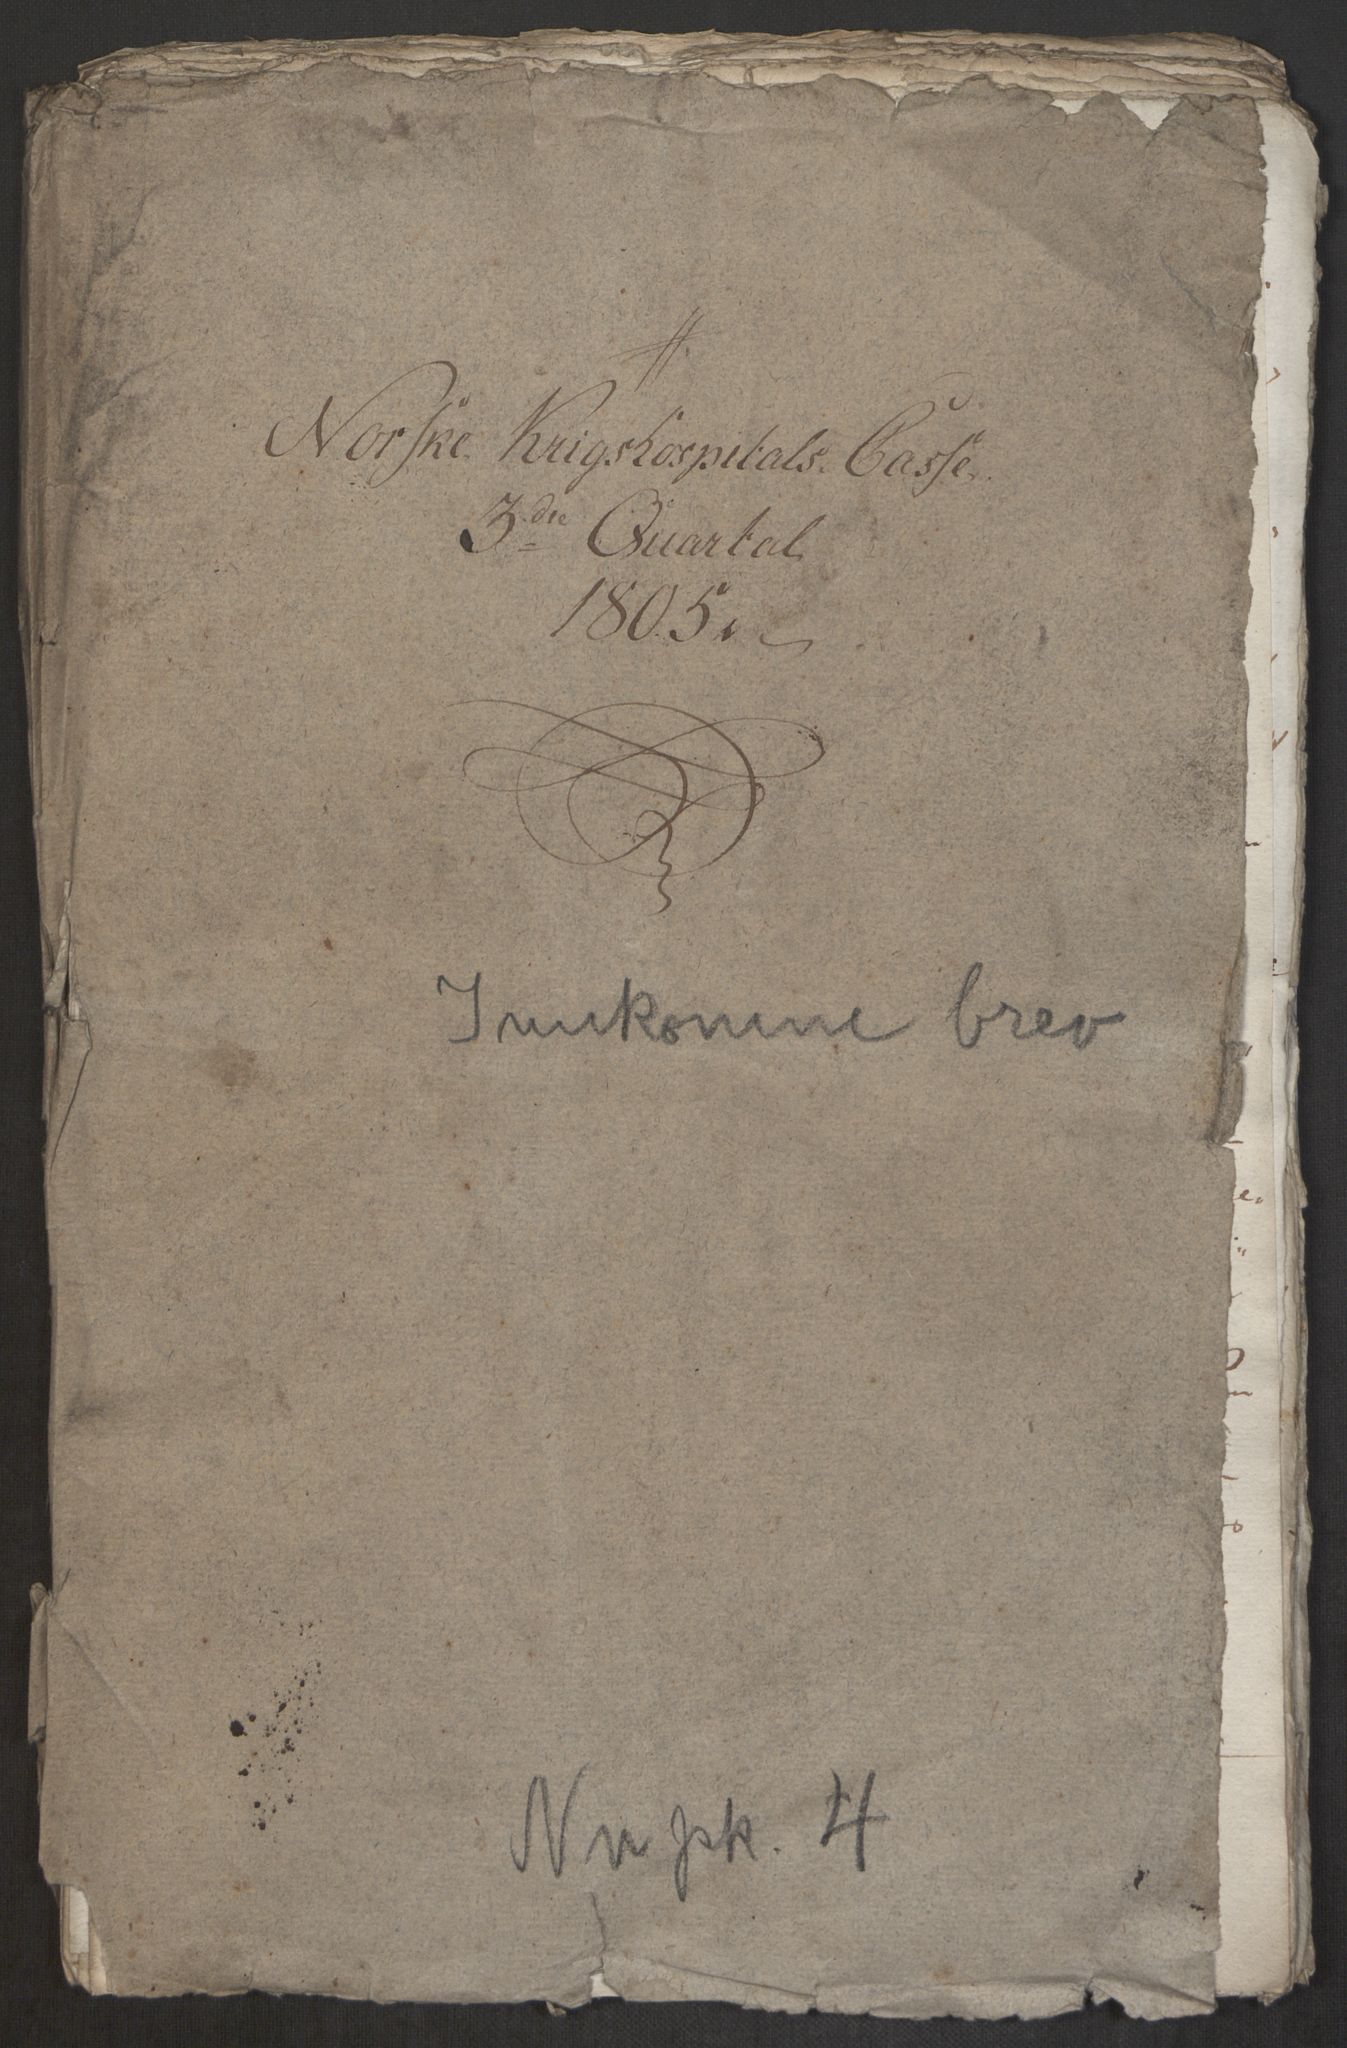 Norske Krigshospitals Casse
3die Quartal
1805.
Innkomne brev
Ny pk. 4